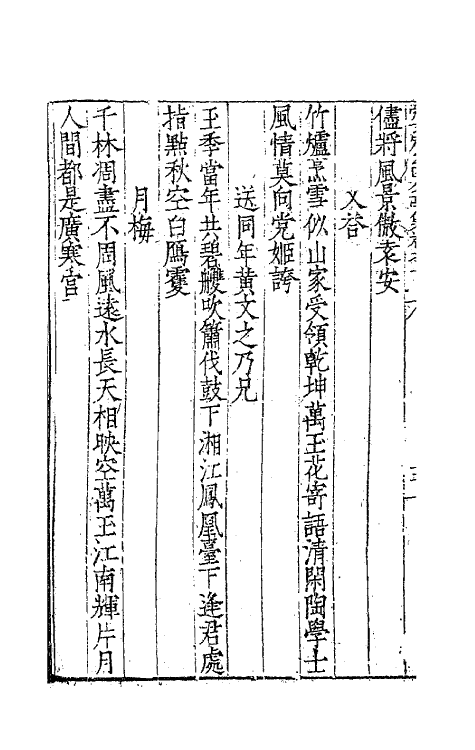 儘將風景傲袁安
又荅
竹爐烹雪似山家受領乾坤萬玉花寄語清閑陶學士
風情莫向党姬誇
送同年黄文之乃兄
王季當年共碧艭吹簫伐鼓下湘江鳳凰臺下逢君處
指點秋空白鴈雙
月梅
千林凋盡不周風遠水長天相映空萬玉江南輝片月
人間都是廣寒宫